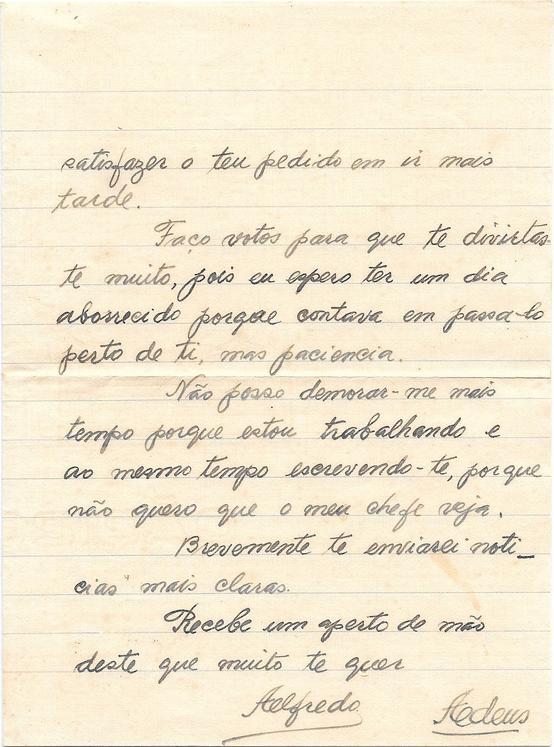 satisfazer o teu pedido em ir mais
tarde.
Faço votos para que te divirtas
te muito, pois eu espero ter um dia
aborrecido porque contava em passa-lo
perto de ti, mas paciencia.
Não posso demorar-me mais
tempo porque estou trabalhando e
ao mesmo tempo escrevendo-te, porque
não quero que o meu chefe veja.
Brevemente te enviarei noti_
cias mais claras.
Recebe um aperto de mão
deste que muito te quer
Alfredo Adeus